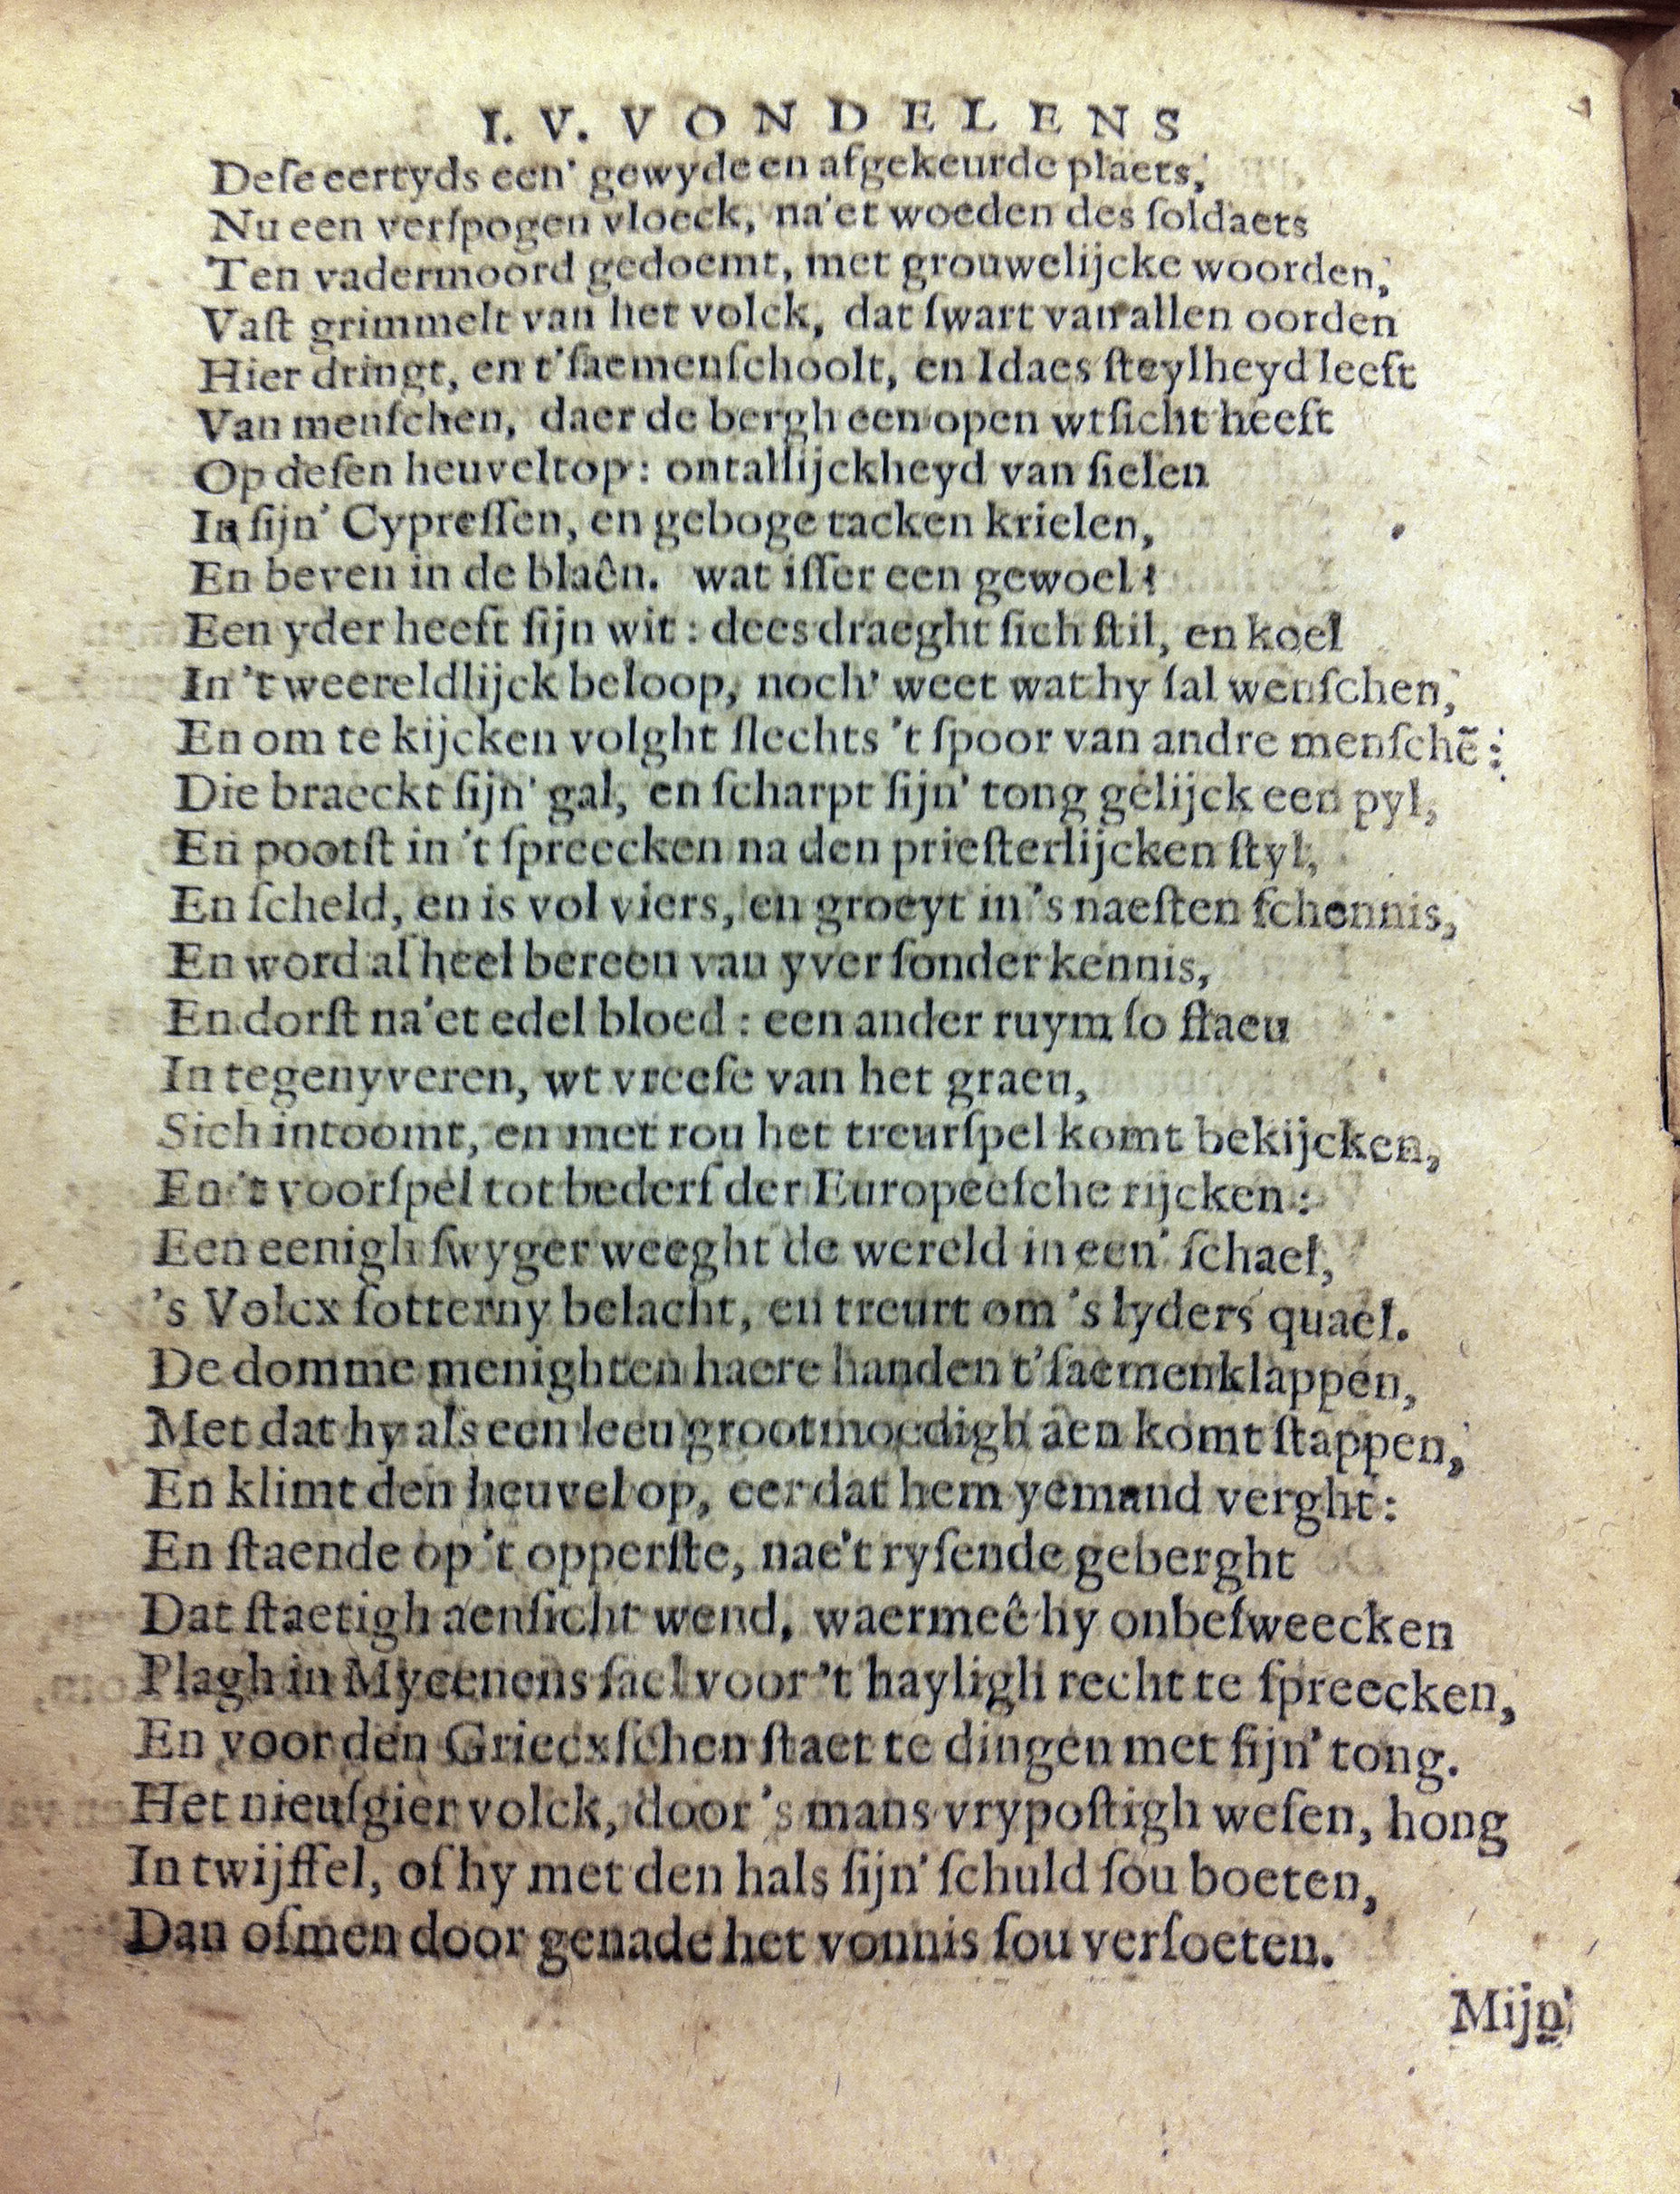 I. V. VONDELENS
Deſe eertyds een' gewyde en afgekeurde plaets,
Nu een verſpogen vloeck, na'et woeden des ſoldaets
Ten vadermoord gedoemt, met grouwelijcke woorden,
Vaſt grimmelt van het volck, dat ſwart van allen oorden
Hier dringt, en t'ſaemenſchoolt, en Idaes ſteylheyd leeft
Van menſchen, daer de bergh een open wtſicht heeft
Op deſen heuveltop: ontallijckheyd van ſielen
In ſijn' Cypreſſen, en geboge tacken krielen,
En beven in de blaên. wat iſſer een gewoel!
Een yder heeft ſijn wit: dees draeght ſich ſtil, en koel
In 't weereldlijck beloop, noch' weet wat hy ſal wenſchen,
En om te kijcken volght ſlechts 't ſpoor van andre menſchẽ:
Die braeckt ſijn' gal, en ſcharpt ſijn' tong gelijck een pyl,
En pootſt in 't ſpreecken na den prieſterlijcken ſtyl,
En ſcheld, en is vol viers, en groeyt in 's naeſten ſchennis,
En word al heel bereen van yver ſonder kennis,
En dorſt na'et edel bloed: een ander ruym ſo ſtaeu
In tegenyveren, wt vreeſe van het graeu,
Sich intoomt, en met rou het treurſpel komt bekijcken,
En 't voorſpel tot bederf der Europeeſche rijcken:
Een eenigh ſwyger weeght de wereld in een' ſchael,
's Volcx ſotterny belacht, en treurt om 's lyders quael.
De domme menighten haere handen t'ſaemenklappen,
Met dat hy als een leeu grootmoedigh aen komt ſtappen,
En klimt den heuvel op, eer dat hem yemand verght:
En ſtaende op 't opperſte, nae't ryſende geberght
Dat ſtaetigh aenſicht wend, waermeê hy onbeſweecken
Plagh in Myceenens ſael voor 't hayligh recht te ſpreecken,
En voor den Griecxſchen ſtaet te dingen met ſijn' tong.
Het nieuſgier volck, door 's mans vrypoſtigh weſen, hong
In twijffel, of hy met den hals ſijn' ſchuld ſou boeten,
Dan ofmen door genade het vonnis ſou verſoeten.
Mijn'